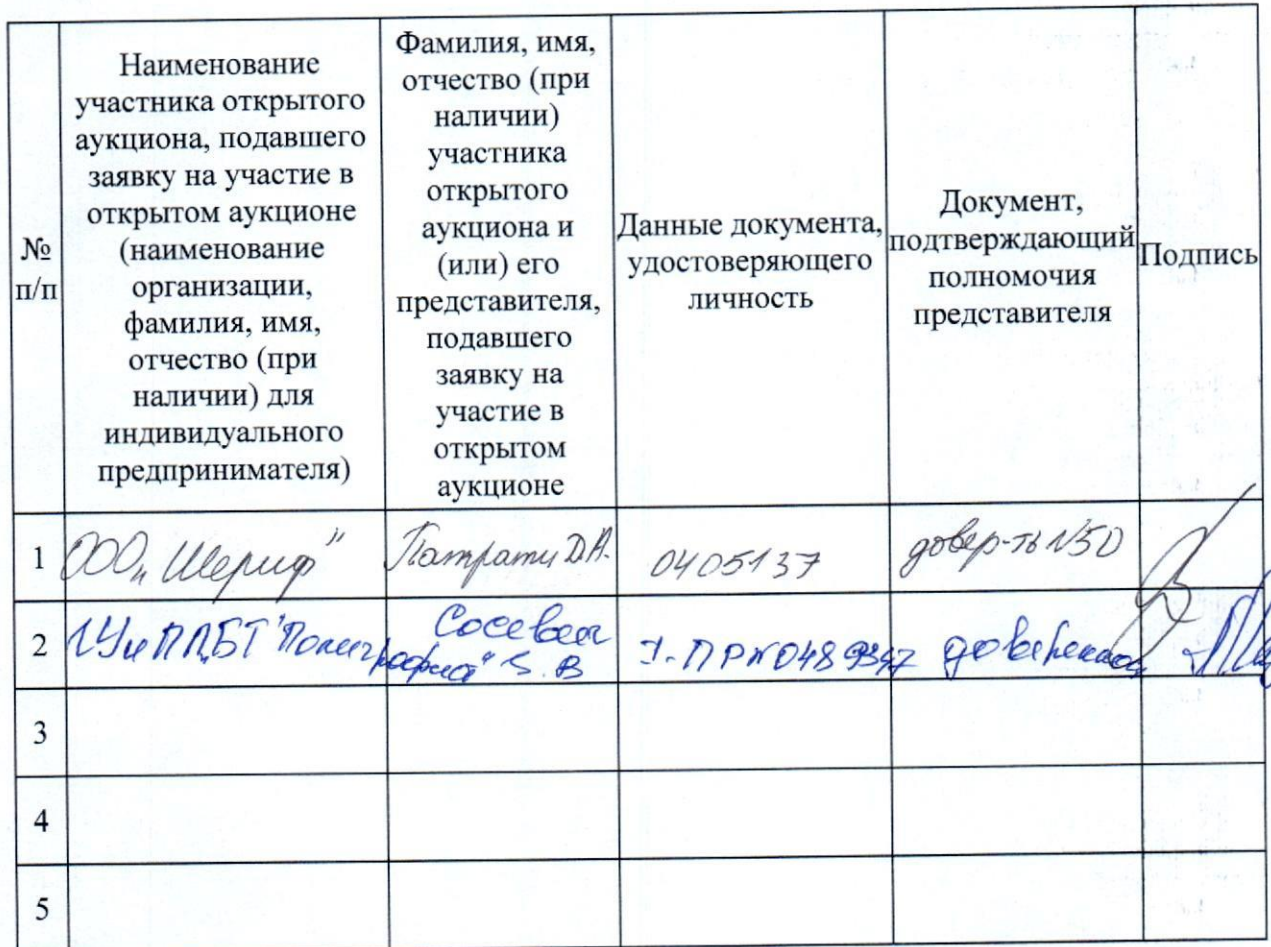 №
п/п
Наименование
участника открытого
аукциона, подавшего
заявку на участие в
открытом аукционе
(наименование
организации,
фамилия, имя,
отчество (при
наличии) для
индивидуального
предпринимателя)
Фамилия, имя,
отчество (при
наличии)
участника
открытого
аукциона и
(или) его
представителя,
подавшего
заявку на
участие в
открытом
аукционе
Данные документа,
удостоверяющего
личность
Документ,
подтверждающий
полномочия
представителя
Подпись
1 ООО „Шериф" Патрати Д.А. 0405137 довер-ть №50
2 "Полиграфия" 0489347
3
4
5